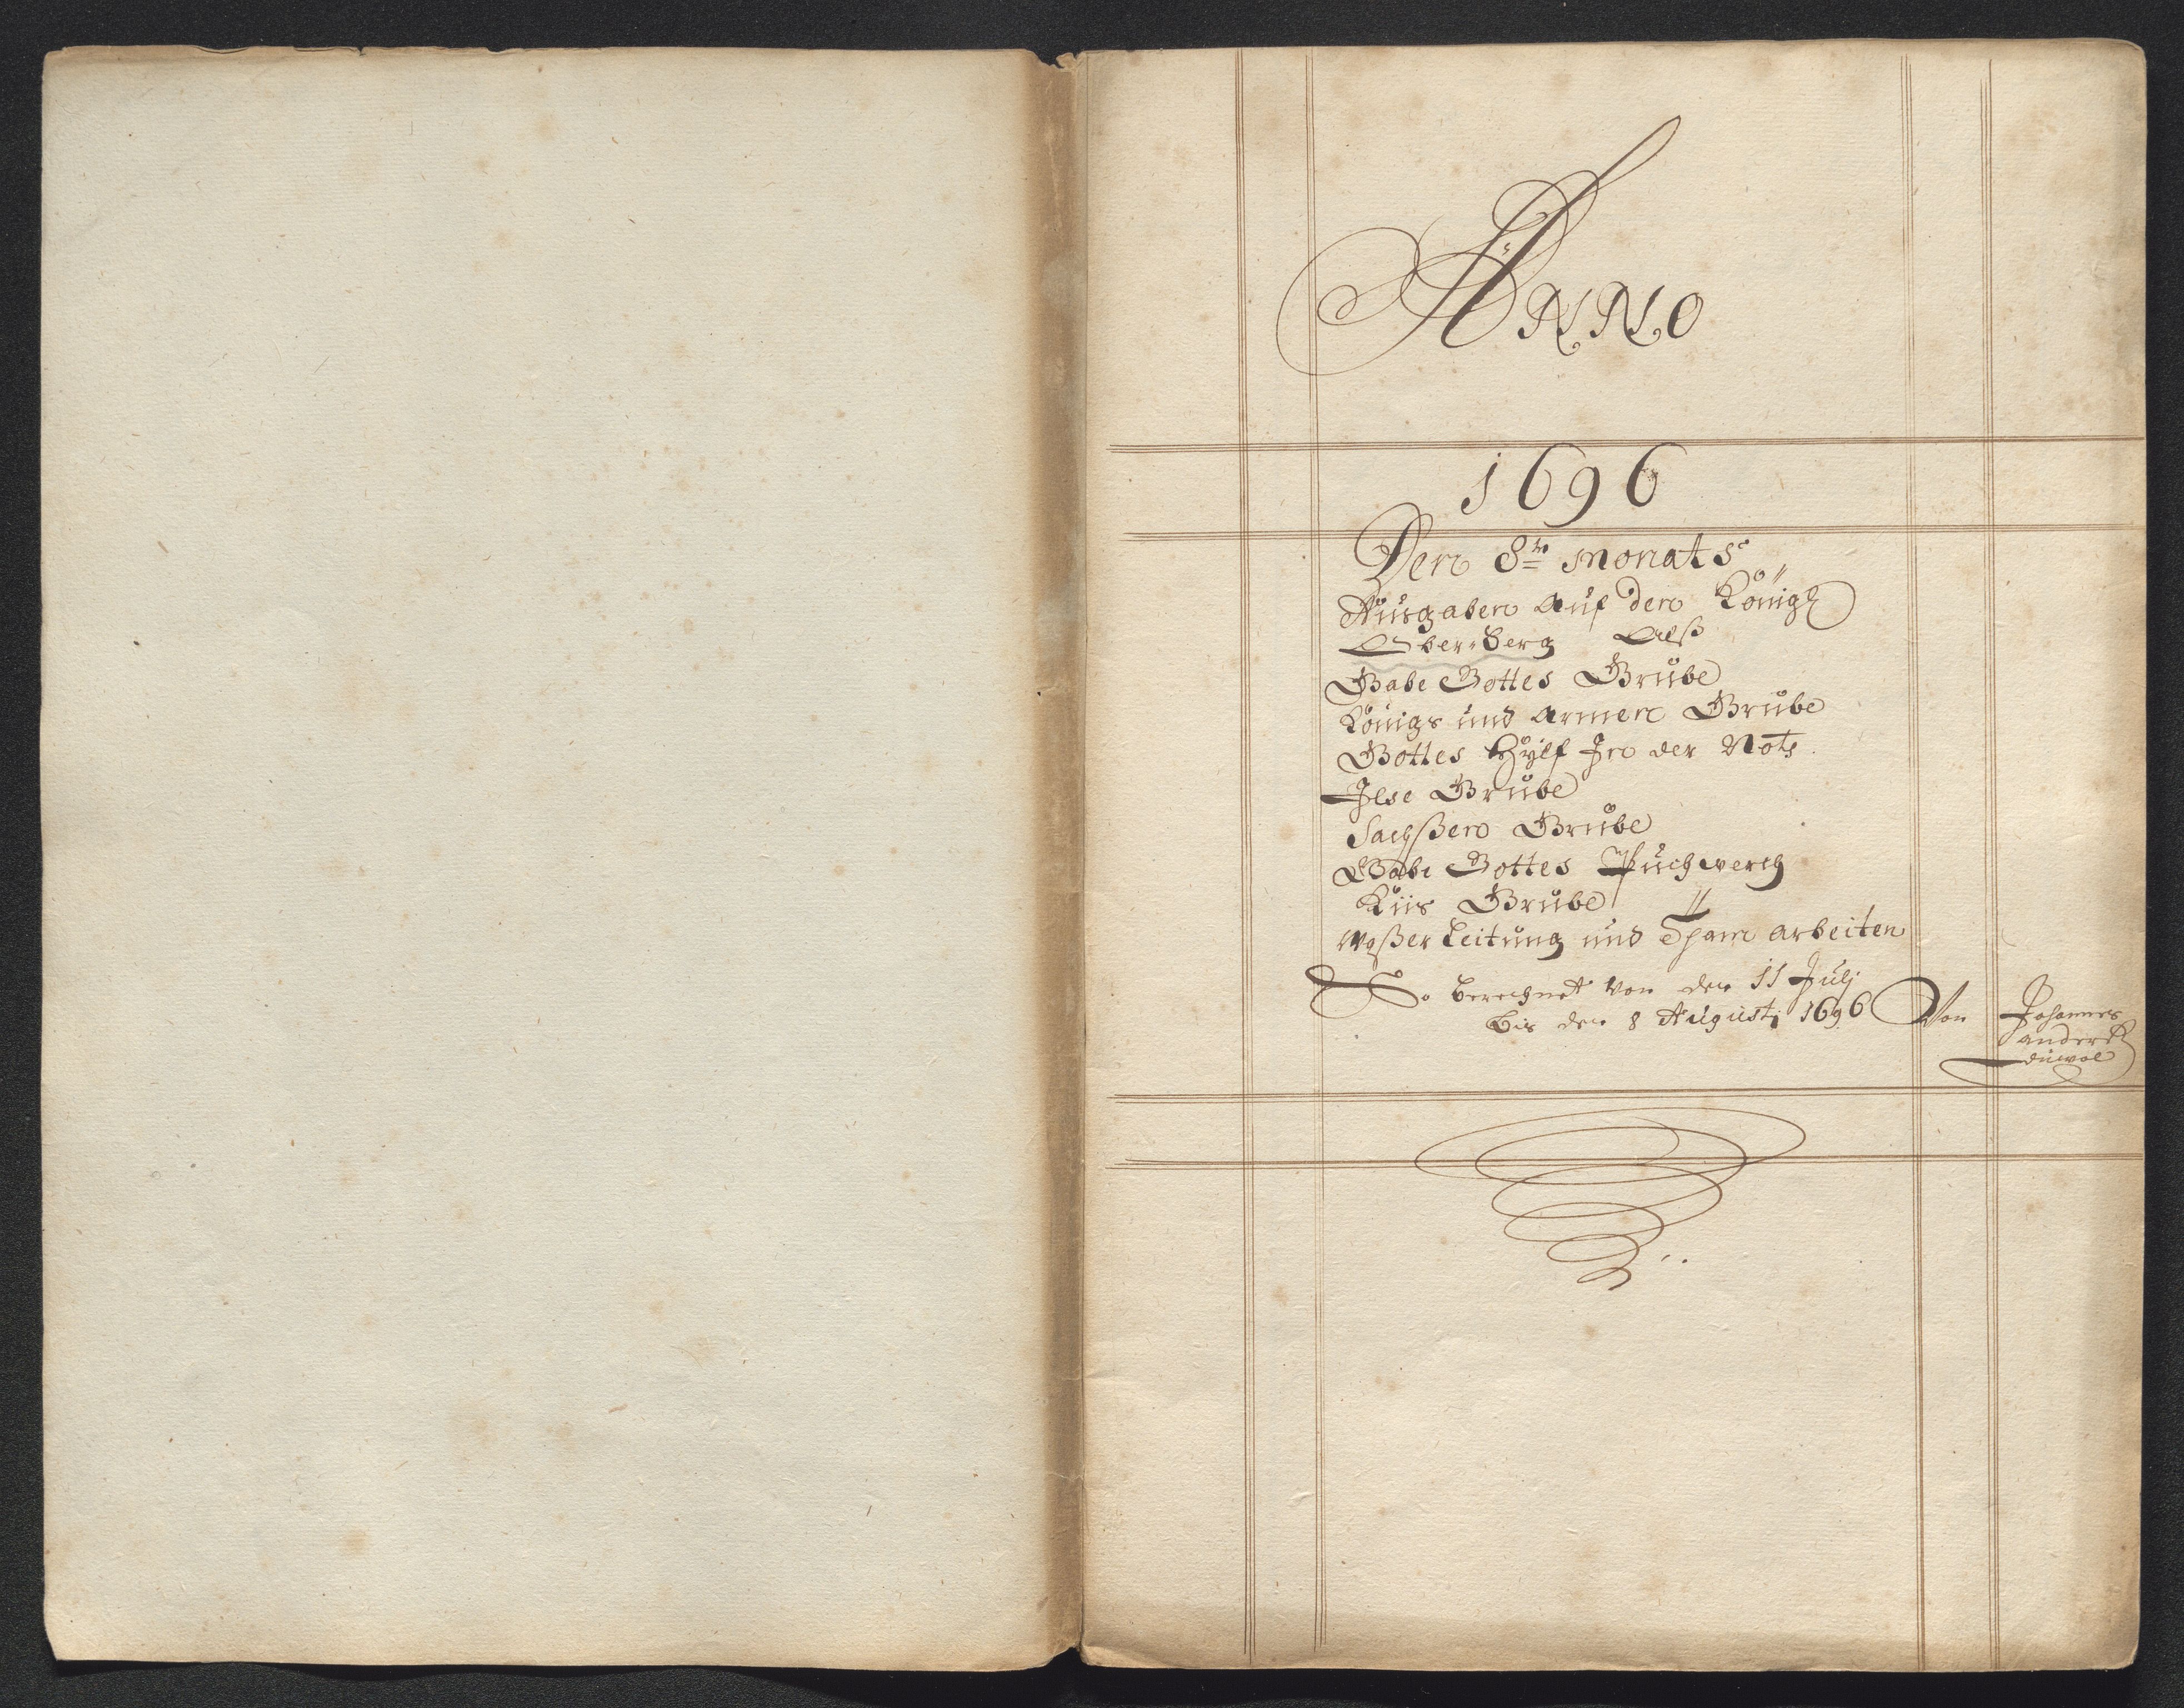 ANNO
1696
Den 8te Monats
Ausgaben auf den Königl
Ober-Berg Alß
Gabe Gottes Grube
Königs und armen Grube
Gottes Hylf In der Noth
Ilse Grube
Sachßen Grube
Gabe Gottes Puchwerch
Kiis Grube
Waßer Leitung und Tham arbeiten
So berechnet von den 11 Julj
bis den 8 Augustj 1696 Von Johannes
anders